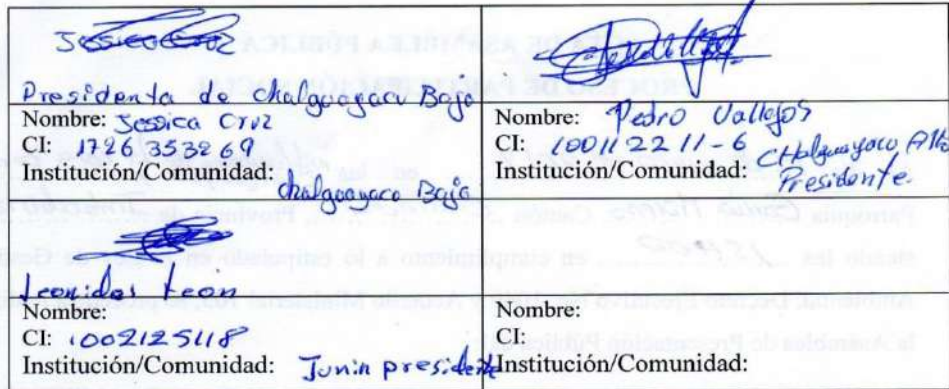 Jessica Cruz
Presidenta de Chalguayacu Bajo
Nombre: Jessica Cruz
CI: 1726353269
Institución/Comunidad: Chalguayacu Bajo
Nombre: Pedro Vallejos
CI: 10011 22 11-6
Institución/Comunidad: CHalguayaco Alto
Presidente.
Leonidas Leon
Nombre:
CI: 1002125118
Institución/Comunidad: Junin presidente
Nombre:
CI:
Institución/Comunidad: